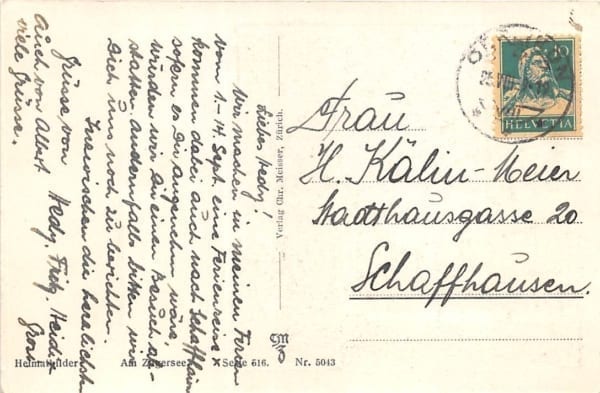 Liebes Hedy!
Wir machen in meinen Ferien
vom 1.–14. Sept. eine Ferienreise &
kommen dabei auch nach Schaffhausen
sofern es Dir angenehm wäre
würden wir Dir einen Besuch ab-
statten. Andernfalls bitten wir
Dich uns noch zu berichten.
Inzwischen die herzlichsten
Grüsse von Hedy, Fritz, Heidi &
Auch von Albert
viele Grüsse.
Verlag Chr. Meisser, Zürich.
10
HELVETIA
Frau
H. Kälin-Meier
Stadthausgasse 20
Schaffhausen.
Heimatbilder Am Zugersee Serie 516. Nr. 5043
CM